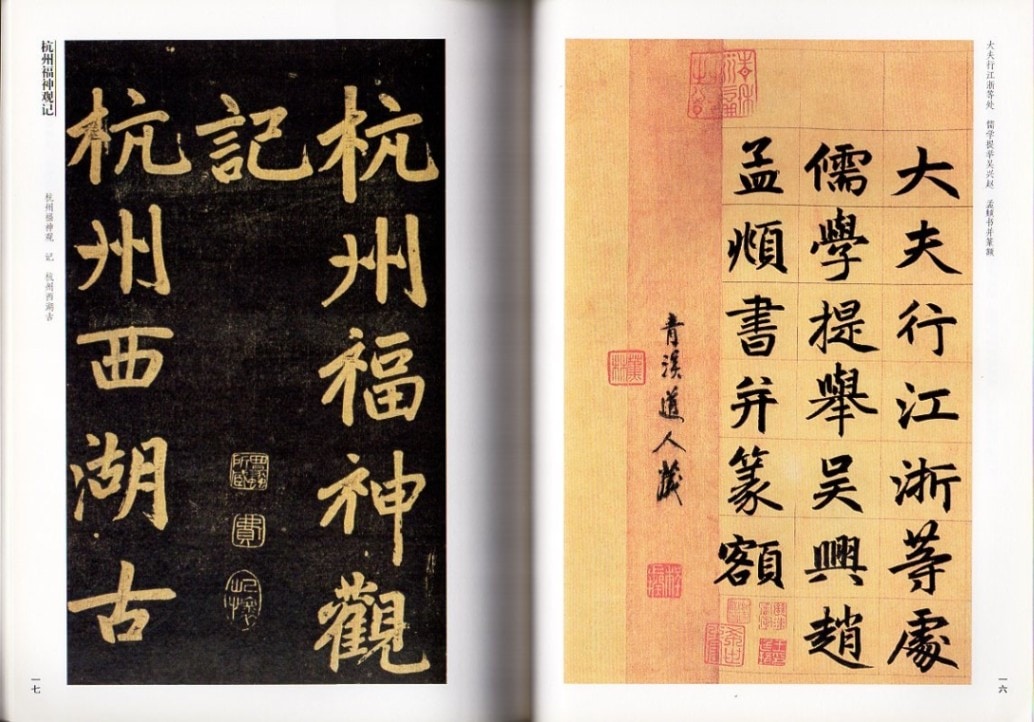 大夫行江浙等处　儒学提举吴兴赵　孟頫书并篆额
大夫行江浙等處
儒學提舉吴興趙
孟頫書并篆額
青溪道人藏
一六
杭州福神觀
記
杭州西湖古
杭州福神观记
杭州福神观　记　杭州西湖古
一七